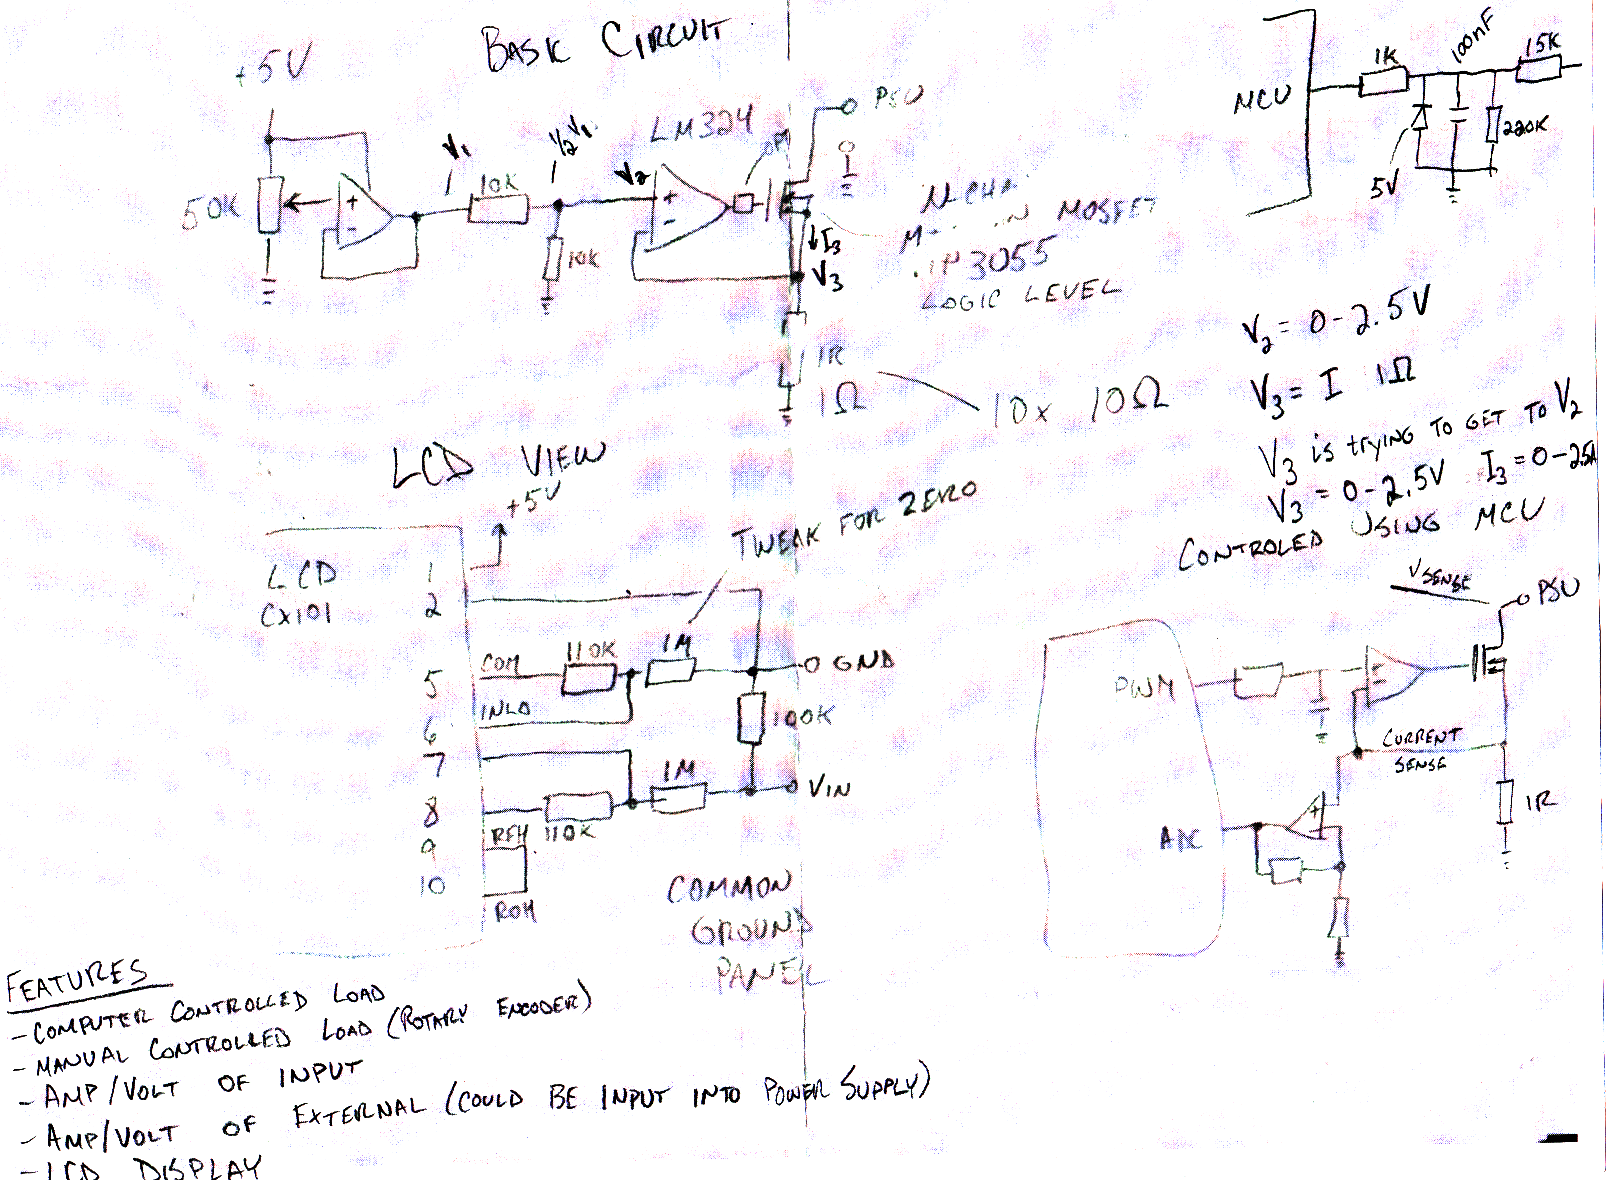 BASIC CIRCUIT
+5V
50K
+
-
V1
10K
1/2 V1
10K
V2
LM324
+
-
PSU
N CHA
MOSFET
3055
LOGIC LEVEL
↓I3
V3
1R
1Ω
10x 10Ω
MCU
1K
100nF
15K
5V
220K
V2 = 0-2.5V
V3 = I 1Ω
V3 is trying to get to V2
V3 = 0-2.5V I3 = 0-2.5A
LCD VIEW
+5V
LCD
CX101
1
2
5
6
7
8
9
10
COM
INLO
REH
ROH
110K
1M
TWEAK FOR ZERO
GND
100K
110K
1M
VIN
COMMON
GROUND
PANEL
CONTROLED USING MCU
VSENSE
PSU
PWM
+
-
CURRENT
SENSE
1R
+
-
FEATURES
- COMPUTER CONTROLLED LOAD
- MANUAL CONTROLLED LOAD (ROTARY ENCODER)
- AMP/VOLT OF INPUT
- AMP/VOLT OF EXTERNAL (COULD BE INPUT INTO POWER SUPPLY)
- LCD DISPLAY